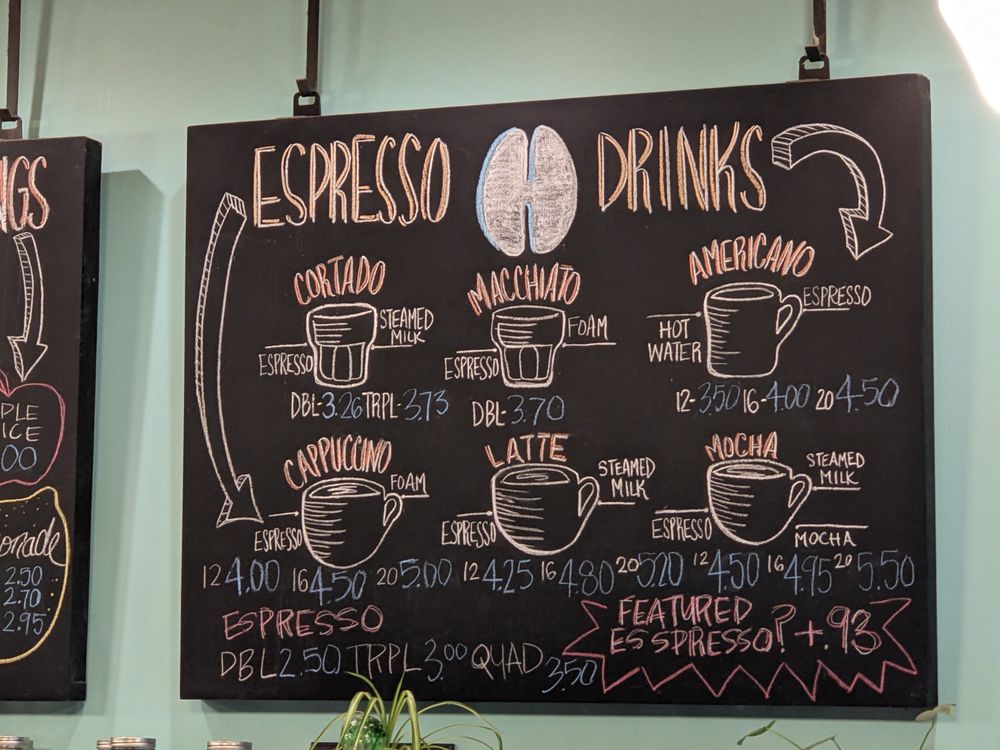 ESPRESSO DRINKS
CORTADO
STEAMED MILK
ESPRESSO
DBL-3.26 TRPL-3.73
MACCHIATO
FOAM
ESPRESSO
DBL-3.70
AMERICANO
ESPRESSO
HOT WATER
12-3.50 16-4.00 20 4.50
CAPPUCCINO
FOAM
ESPRESSO
12 4.00 16 4.50 20 5.00
LATTE
STEAMED MILK
ESPRESSO
12 4.25 16 4.80 20 5.20
MOCHA
STEAMED MILK
ESPRESSO
MOCHA
12 4.50 16 4.95 20 5.50
ESPRESSO
DBL 2.50 TRPL 3.00 QUAD 3.50
FEATURED
ESSPRESSO? +.93
NGS
PLE
ICE
00
onade
2.50
2.70
2.95